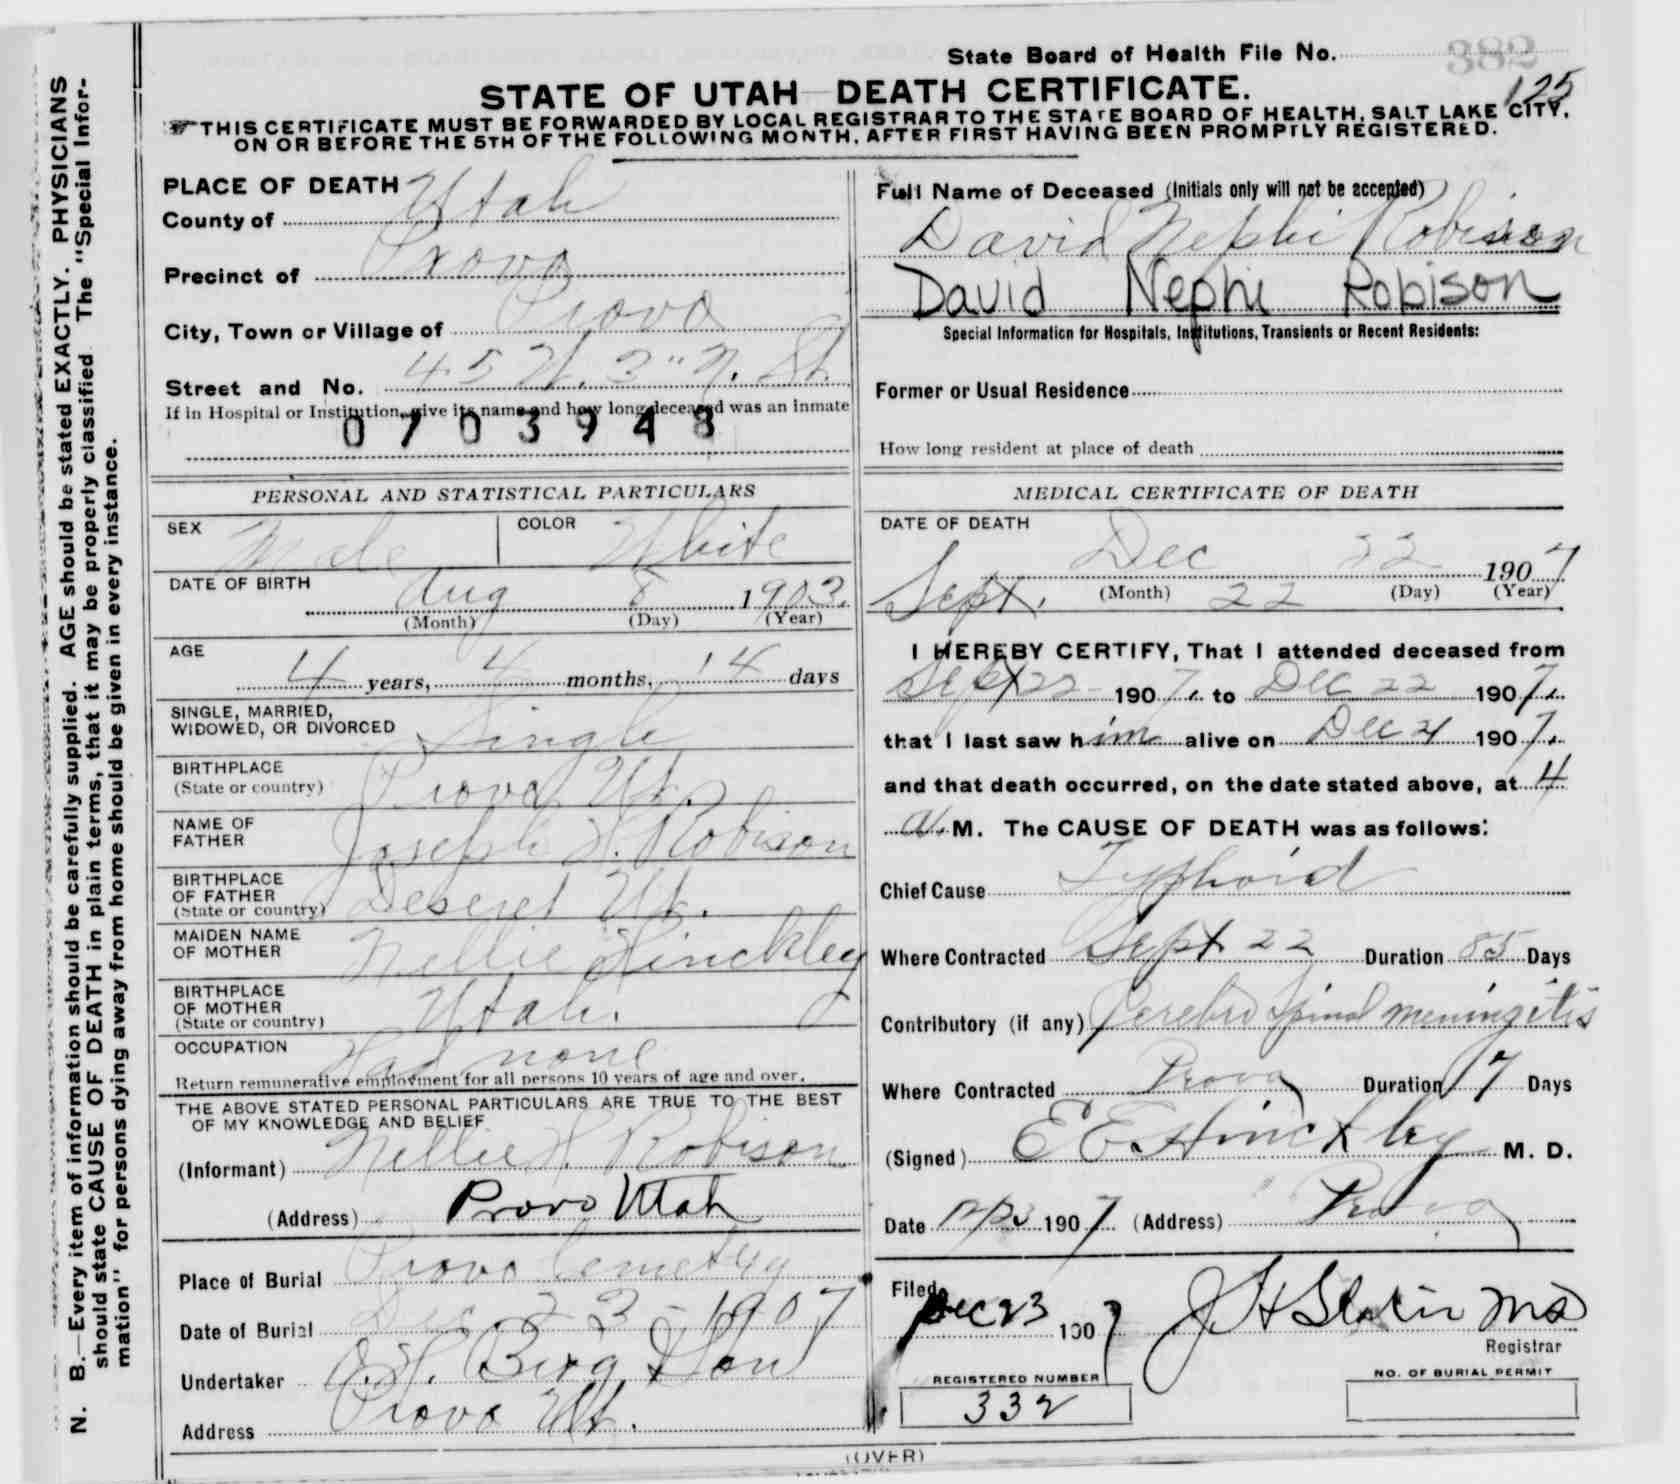 State Board of Health File No. 382
125
STATE OF UTAH DEATH CERTIFICATE.
THIS CERTIFICATE MUST BE FORWARDED BY LOCAL REGISTRAR TO THE STATE BOARD OF HEALTH, SALT LAKE CITY,
ON OR BEFORE THE 5TH OF THE FOLLOWING MONTH, AFTER FIRST HAVING BEEN PROMPTLY REGISTERED.
N. B.—Every item of information should be carefully supplied. AGE should be stated EXACTLY. PHYSICIANS
should state CAUSE OF DEATH in plain terms, that it may be properly classified The "Special Infor-
mation" for persons dying away from home should be given in every instance.
PLACE OF DEATH
County of Utah
Precinct of Provo
City, Town or Village of Provo
Street and No. 45 W. 3" N. St.
If in Hospital or Institution, give its name and how long deceased was an inmate
0703948
Full Name of Deceased (Initials only will not be accepted)
David Nephi Robison
David Nephi Robison
Special Information for Hospitals, Institutions, Transients or Recent Residents:
Former or Usual Residence
How long resident at place of death
PERSONAL AND STATISTICAL PARTICULARS
SEX Male COLOR White
DATE OF BIRTH Aug 8 1903.
(Month) (Day) (Year)
AGE
4 years, 4 months, 14 days
SINGLE, MARRIED,
WIDOWED, OR DIVORCED Single
BIRTHPLACE
(State or country) Provo Ut.
NAME OF
FATHER Joseph H. Robison
BIRTHPLACE
OF FATHER
(State or country) Deseret Ut.
MAIDEN NAME
OF MOTHER Nellie Hinckley
BIRTHPLACE
OF MOTHER
(State or country) Utah.
OCCUPATION Had none
Return remunerative employment for all persons 10 years of age and over.
THE ABOVE STATED PERSONAL PARTICULARS ARE TRUE TO THE BEST
OF MY KNOWLEDGE AND BELIEF
(Informant) Nellie H. Robison
(Address) Provo Utah
Place of Burial Provo Cemetry
Date of Burial Dec 23 - 1907
Undertaker O. H. Berg & Son
Address Provo Ut.
MEDICAL CERTIFICATE OF DEATH
DATE OF DEATH
Dec 22 1907
Sept. 22 (Month) (Day) (Year)
I HEREBY CERTIFY, That I attended deceased from
Sept 22 1907. to Dec 22 1907.
that I last saw him alive on Dec 21 1907.
and that death occurred, on the date stated above, at 4
a. M. The CAUSE OF DEATH was as follows:
Chief Cause Typhoid
Where Contracted Sept 22 Duration 85 Days
Contributory (if any) Cerebro Spinal meningitis
Where Contracted Provo Duration 17 Days
(Signed) E E Hinckley M. D.
Date 12/23 1907 (Address) Provo
Filed
Dec 23 1907
Registrar
REGISTERED NUMBER
332
NO. OF BURIAL PERMIT
(OVER)